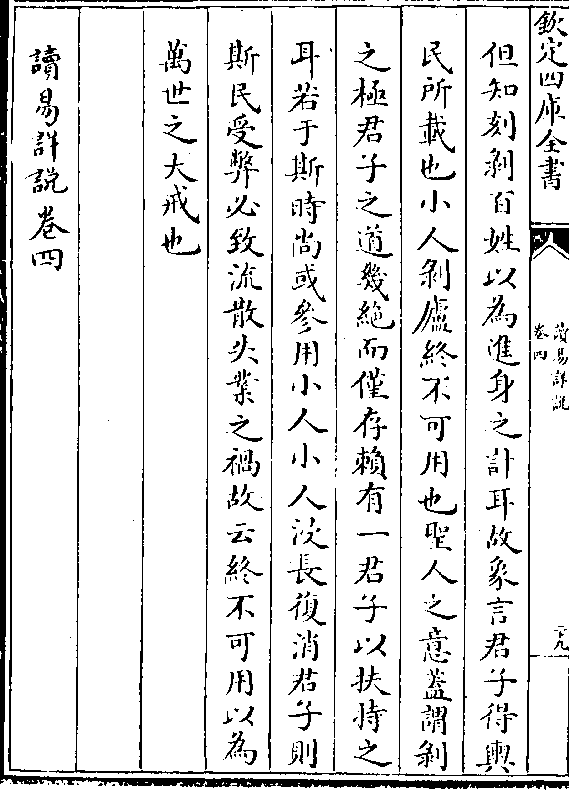 欽定四庫全書
讀易詳説
卷四
二九
但知刻剝百姓以為進身之計耳故象言君子得輿
民所載也小人剝廬終不可用也聖人之意蓋謂剝
之極君子之道幾絶而僅存賴有一君子以扶持之
耳若于斯時尚或參用小人小人浸長復消君子則
斯民受弊必致流散失業之禍故云終不可用以為
萬世之大戒也
讀易詳説卷四